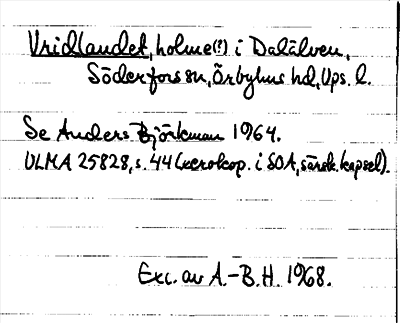 Vridlandet, holme(?) i Dalälven,
Söderfors sn, Örbyhus hd, Ups. l.
Se Anders Björkman 1964.
ULMA 25828, s. 44 (xerokop. i SOA, särsk. kapsel).
Exc. av A.-B.H. 1968.